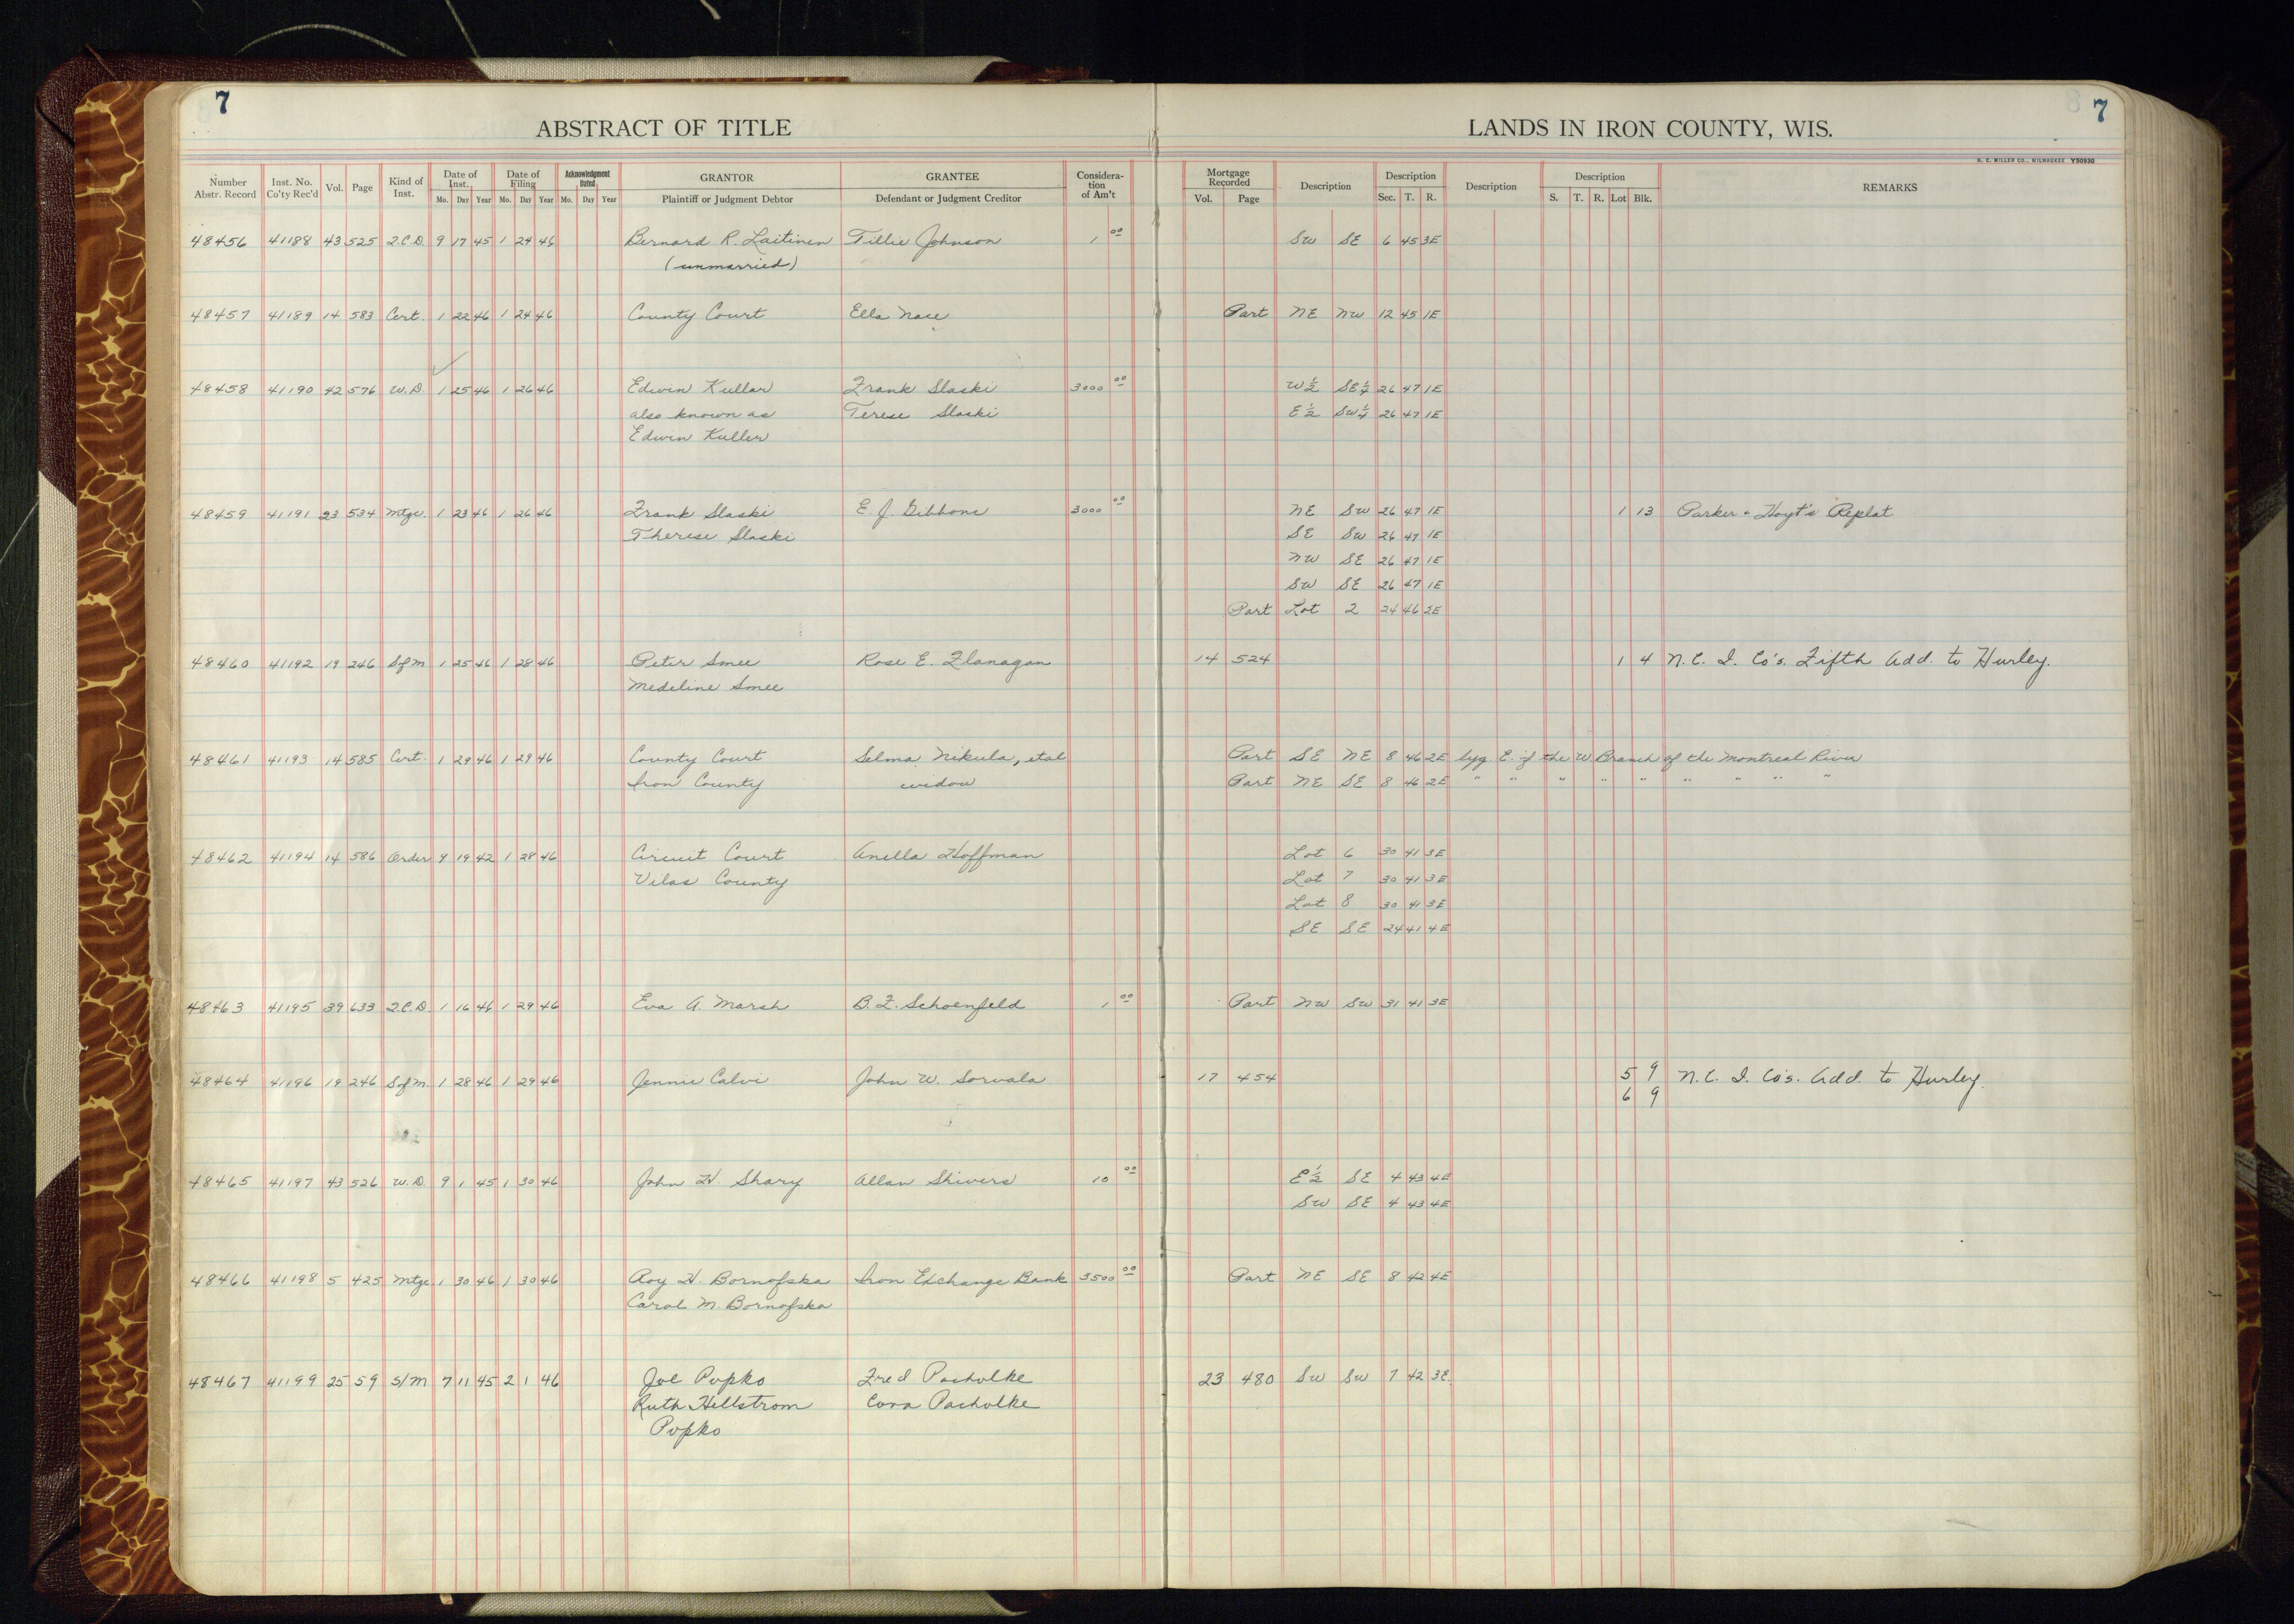 7
7
ABSTRACT OF TITLE
LANDS IN IRON COUNTY, WIS.
H. C. MILLER CO., MILWAUKEE Y50930
Number Abstr. Record Inst. No. Co'ty Rec'd Vol. Page Kind of Inst. Date of Inst. Mo. Day Year Date of Filing Mo. Day Year Acknowledgment Dated Mo. Day Year GRANTOR Plaintiff or Judgment Debtor GRANTEE Defendant or Judgment Creditor Considera-tion of Am't Mortgage Recorded Vol. Page Description Description Sec. T. R. Description Description S. T. R. Lot Blk. REMARKS
48456 41188 43 525 Q.C.D. 9 17 45 1 24 46 Bernard R. Laitinen Tillie Johnson 1 00 SW SE 6 45 3E
(unmarried)
48457 41189 14 583 Cert. 1 22 46 1 24 46 County Court Ella Nace Part NE NW 12 45 1E
48458 41190 42 576 W.D. 1 25 46 1 26 46 Edwin Kullar Frank Slaski 3000 00 W½ SE¼ 26 47 1E
also known as Terese Slaski E½ SW¼ 26 47 1E
Edwin Kuller
48459 41191 23 534 Mtge. 1 23 46 1 26 46 Frank Slaski E. J. Gibbons 3000 00 NE SW 26 47 1E 1 13 Parker & Hoyt's Replat
Therese Slaski SE SW 26 47 1E
NW SE 26 47 1E
SW SE 26 47 1E
Part Lot 2 24 46 2E
48460 41192 19 246 S of M 1 25 46 1 28 46 Peter Smee Rose E. Flanagan 14 524 1 4 N. C. I. Co's. Fifth Add. to Hurley.
Medeline Smee
48461 41193 14 585 Cert. 1 29 46 1 29 46 County Court Selma Nikula, etal Part SE NE 8 46 2E lyg E. of the W Branch of the Montreal River
Iron County widow Part NE SE 8 46 2E " " " " " " " " "
48462 41194 14 586 Order 9 19 42 1 28 46 Circuit Court Anella Hoffman Lot 6 30 41 3E
Vilas County Lot 7 30 41 3E
Lot 8 30 41 3E
SE SE 24 41 4E
48463 41195 39 633 Q.C.D. 1 16 46 1 29 46 Eva A. Marsh B. F. Schoenfeld 1 00 Part NW SW 31 41 3E
48464 41196 19 246 S of M. 1 28 46 1 29 46 Jennie Calvi John W. Sorvala 17 454 5 9 N. C. I. Co's. Add. to Hurley.
6 9
48465 41197 43 526 W.D. 9 1 45 1 30 46 John H. Shary Allan Shivers 10 00 E½ SE 4 43 4E
SW SE 4 43 4E
48466 41198 5 425 Mtge 1 30 46 1 30 46 Roy H. Bornofska Iron Exchange Bank 3500 00 Part NE SE 8 42 4E
Carol M. Bornofska
48467 41199 25 59 S/M 7 11 45 2 1 46 Joe Popko Fred Pacholke 23 480 SW SW 7 42 3E.
Ruth Hillstrom Cora Pacholke
Popko